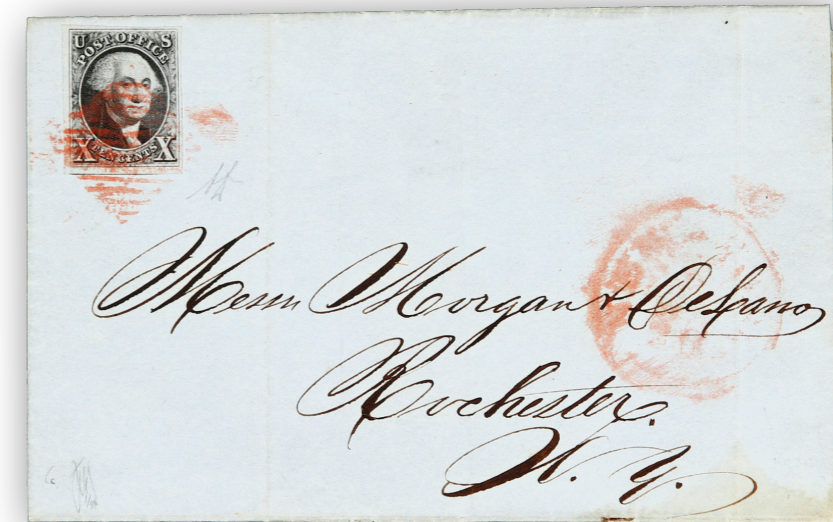 U S
POST OFFICE
X TEN CENTS X
Messrs Morgan & DeLano
Rochester.
N. Y.